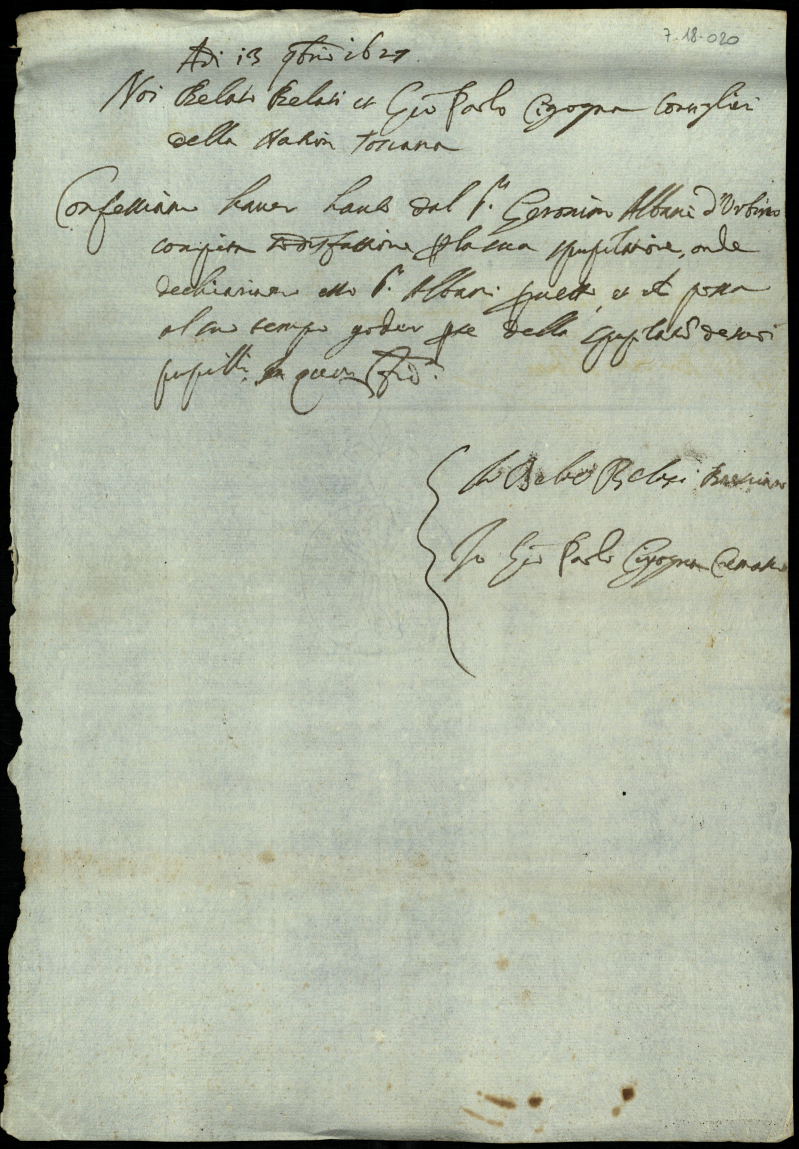 7-18-020
Adi 13 9bre 1627
Noi Belati Belati et Gio Paolo Cigogna Consiglieri
della Nation Toscana
Confessiamo haver hauto dal Sr. Geronimo Albani d'Urbino
compita sodisfattione p la sua spupilatione, onde
dechiariamo esso Sr. Albani et possa
al suo tempo goder della spupilatio de suoi
pupilli, In quor fid.
Io Belati Belati
Io Gio Paolo Cigogna